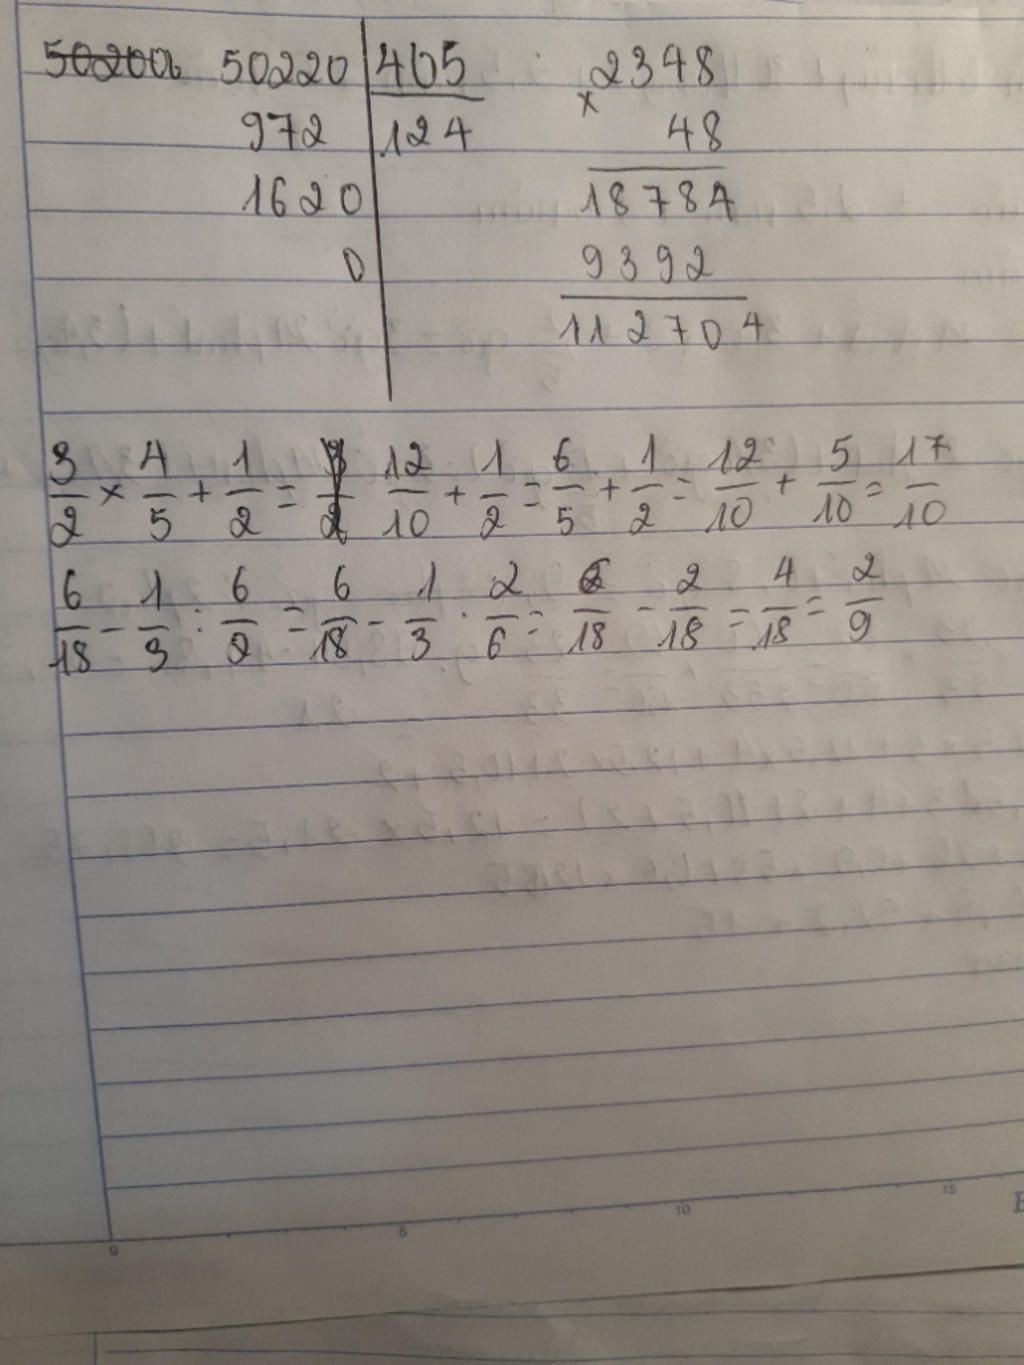 50200 50220 405
972 124
1620
0
2348
× 48
18784
9392
112704
3/2 × 4/5 + 1/2 = 12/10 + 1/2 = 6/5 + 1/2 = 12/10 + 5/10 = 17/10
6/18 - 1/3 : 6/2 = 6/18 - 1/3 . 2/6 = 6/18 - 2/18 = 4/18 = 2/9
0 5 10 15